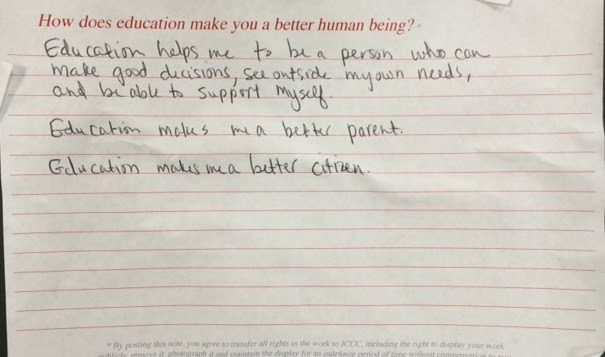 How does education make you a better human being? *
Education helps me to be a person who can
make good decisions, see outside my own needs,
and be able to support myself.
Education makes me a better parent.
Education makes me a better citizen.
* By posting this note, you agree to transfer all rights in the work to JCCC, including the right to display your work
publicly, remove it, photograph it and maintain the display for an indefinite period of time without compensation to